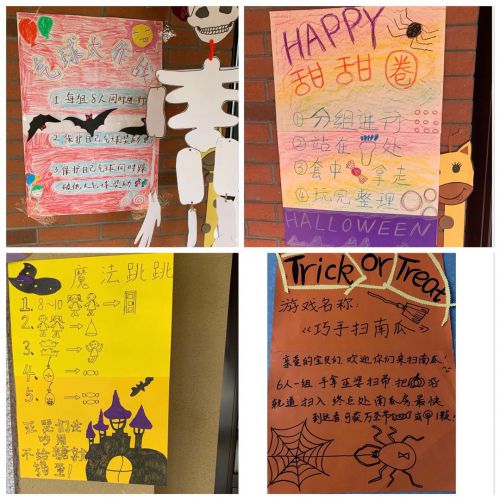 气球大作战
1 每组8人同时进行
2 保护自己气球
3 保护自己气球同时踩
破他人气球
HAPPY
甜甜圈
①分组进行
②站在 处
③套中 拿走
④玩完整理
HALLOWEEN
魔法跳跳
1. 8~10
2.
3.
4.
5.
不给糖就
捣蛋!
Trick or Treat
游戏名称:
《巧手扫南瓜》
亲爱的宝贝们,欢迎你们来扫南瓜!
6人一组,手拿巫婆扫帚把 沿
轨道扫入终点处南瓜房,最快
到达者可获万圣节 1颗!